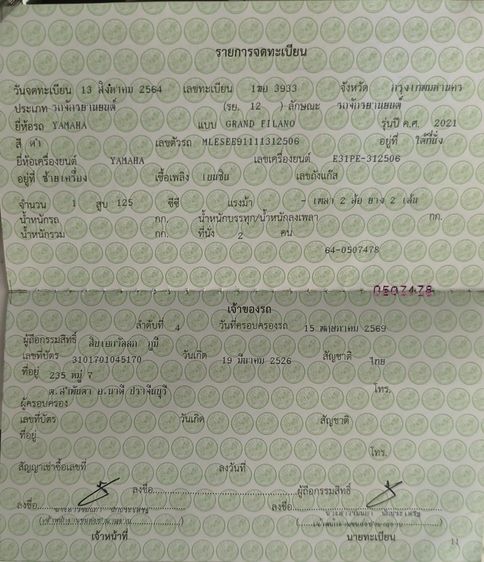 รายการจดทะเบียน
วันจดทะเบียน 13 สิงหาคม 2564 เลขทะเบียน 1ขย 3933 จังหวัด กรุงเทพมหานคร
ประเภท รถจักรยานยนต์ (รย. 12 ) ลักษณะ รถจักรยานยนต์
ยี่ห้อรถ YAMAHA แบบ GRAND FILANO รุ่นปี ค.ศ. 2021
สี ดำ เลขตัวรถ MLESEE91111312506 อยู่ที่ ใต้ที่นั่ง
ยี่ห้อเครื่องยนต์ YAMAHA เลขเครื่องยนต์ E31PE-312506
อยู่ที่ ซ้ายเครื่อง เชื้อเพลิง เบนซิน เลขถังแก๊ส
จำนวน 1 สูบ 125 ซีซี แรงม้า - เพลา 2 ล้อ ยาง 2 เส้น
น้ำหนักรถ กก. น้ำหนักบรรทุก/น้ำหนักลงเพลา กก.
น้ำหนักรวม กก. ที่นั่ง 2 คน
64-0507478
0507478
เจ้าของรถ
ลำดับที่ 4 วันที่ครอบครองรถ 15 พฤษภาคม 2569
ผู้ถือกรรมสิทธิ์ ภูมิ
เลขที่บัตร 3101701045170 วันเกิด 19 มีนาคม 2526 สัญชาติ ไทย
ที่อยู่ 235 หมู่ 7
ต.สำพันตา อ.นาดี ปราจีนบุรี โทร.
ผู้ครอบครอง
เลขที่บัตร วันเกิด สัญชาติ
ที่อยู่
โทร.
สัญญาเช่าซื้อเลขที่ ลงวันที่
ลงชื่อ ผู้ถือกรรมสิทธิ์
ลงชื่อ ลงชื่อ
เจ้าหน้าที่ นายทะเบียน
11